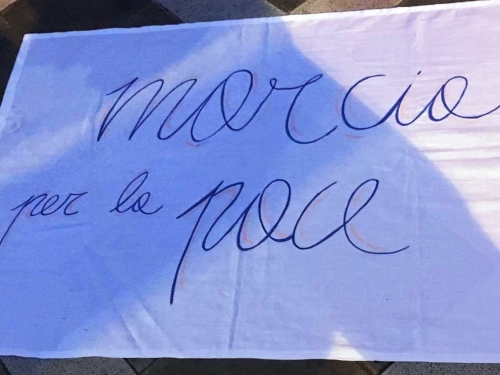 marcia
per la pace